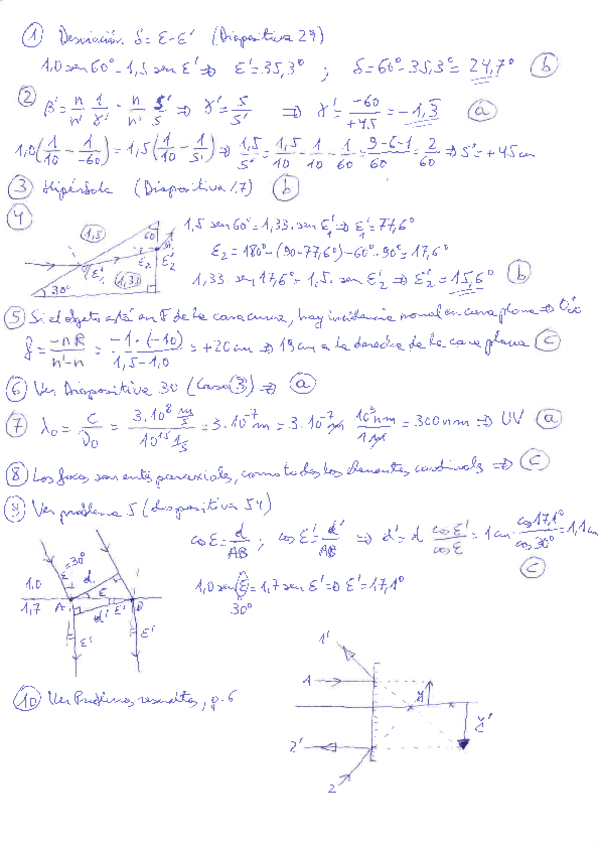 ① Desviación δ = ε - ε' (Diapositiva 29)
1,0 sen 60° = 1,5 sen ε' ⇒ ε' = 35,3° ; δ = 60° - 35,3° = 24,7° ⓑ
② β' = n/n' 1/γ' = n/n' s'/s ⇒ γ' = s/s' ⇒ γ' = -60/+45 = -1,3 ⓐ
1,0(1/10 - 1/-60) = 1,5(1/10 - 1/s') ⇒ 1,5/s' = 1,5/10 - 1/10 - 1/60 = 9-6-1/60 = 2/60 ⇒ s' = +45 cm
③ Hipérbola (Diapositiva 17) ⓑ
④
1,5 60 1,33 30° ε'₁ ε₂ ε'₂
1,5 sen 60° = 1,33 · sen ε'₁ ⇒ ε'₁ = 77,6°
ε₂ = 180° - (90 - 77,6°) - 60° - 90° = 17,6°
1,33 sen 17,6° = 1,5 · sen ε'₂ ⇒ ε'₂ = 15,6° ⓑ
⑤ Si el objeto está en F de la cara curva, hay incidencia normal en cara plana ⇒
f = -nR/n'-n = -1·(-10)/1,5-1,0 = +20 cm ⇒ 19 cm a la derecha de la cara plana ⓒ
⑥ Ver Diapositiva 30 (Caso ③) ⇒ ⓐ
⑦ λ₀ = c/ν₀ = 3·10⁸ m/s / 10¹⁵ 1/s = 3·10⁻⁷ m = 3·10⁻⁷ m 10⁹nm/1m = 300 nm ⇒ UV ⓐ
⑧ Los focos son entes paraxiales, como todos los elementos cardinales ⇒ ⓒ
⑨ Ver problema 5 (diapositiva 54)
cos ε = d/AB ; cos ε' = d'/AB ⇒ d' = d cos ε'/cos ε = 1 cm · cos 17,1°/cos 30° = 1,1 cm
ⓒ
1,0 sen ε = 1,7 sen ε' ⇒ ε' = 17,1°
30°
ε = 30° d
1.0 ε
1,7 A d' ε' B
ε' ε'
⑩ Ver Problemas resueltos, p. 6
1'
1 y
y'
2'
2